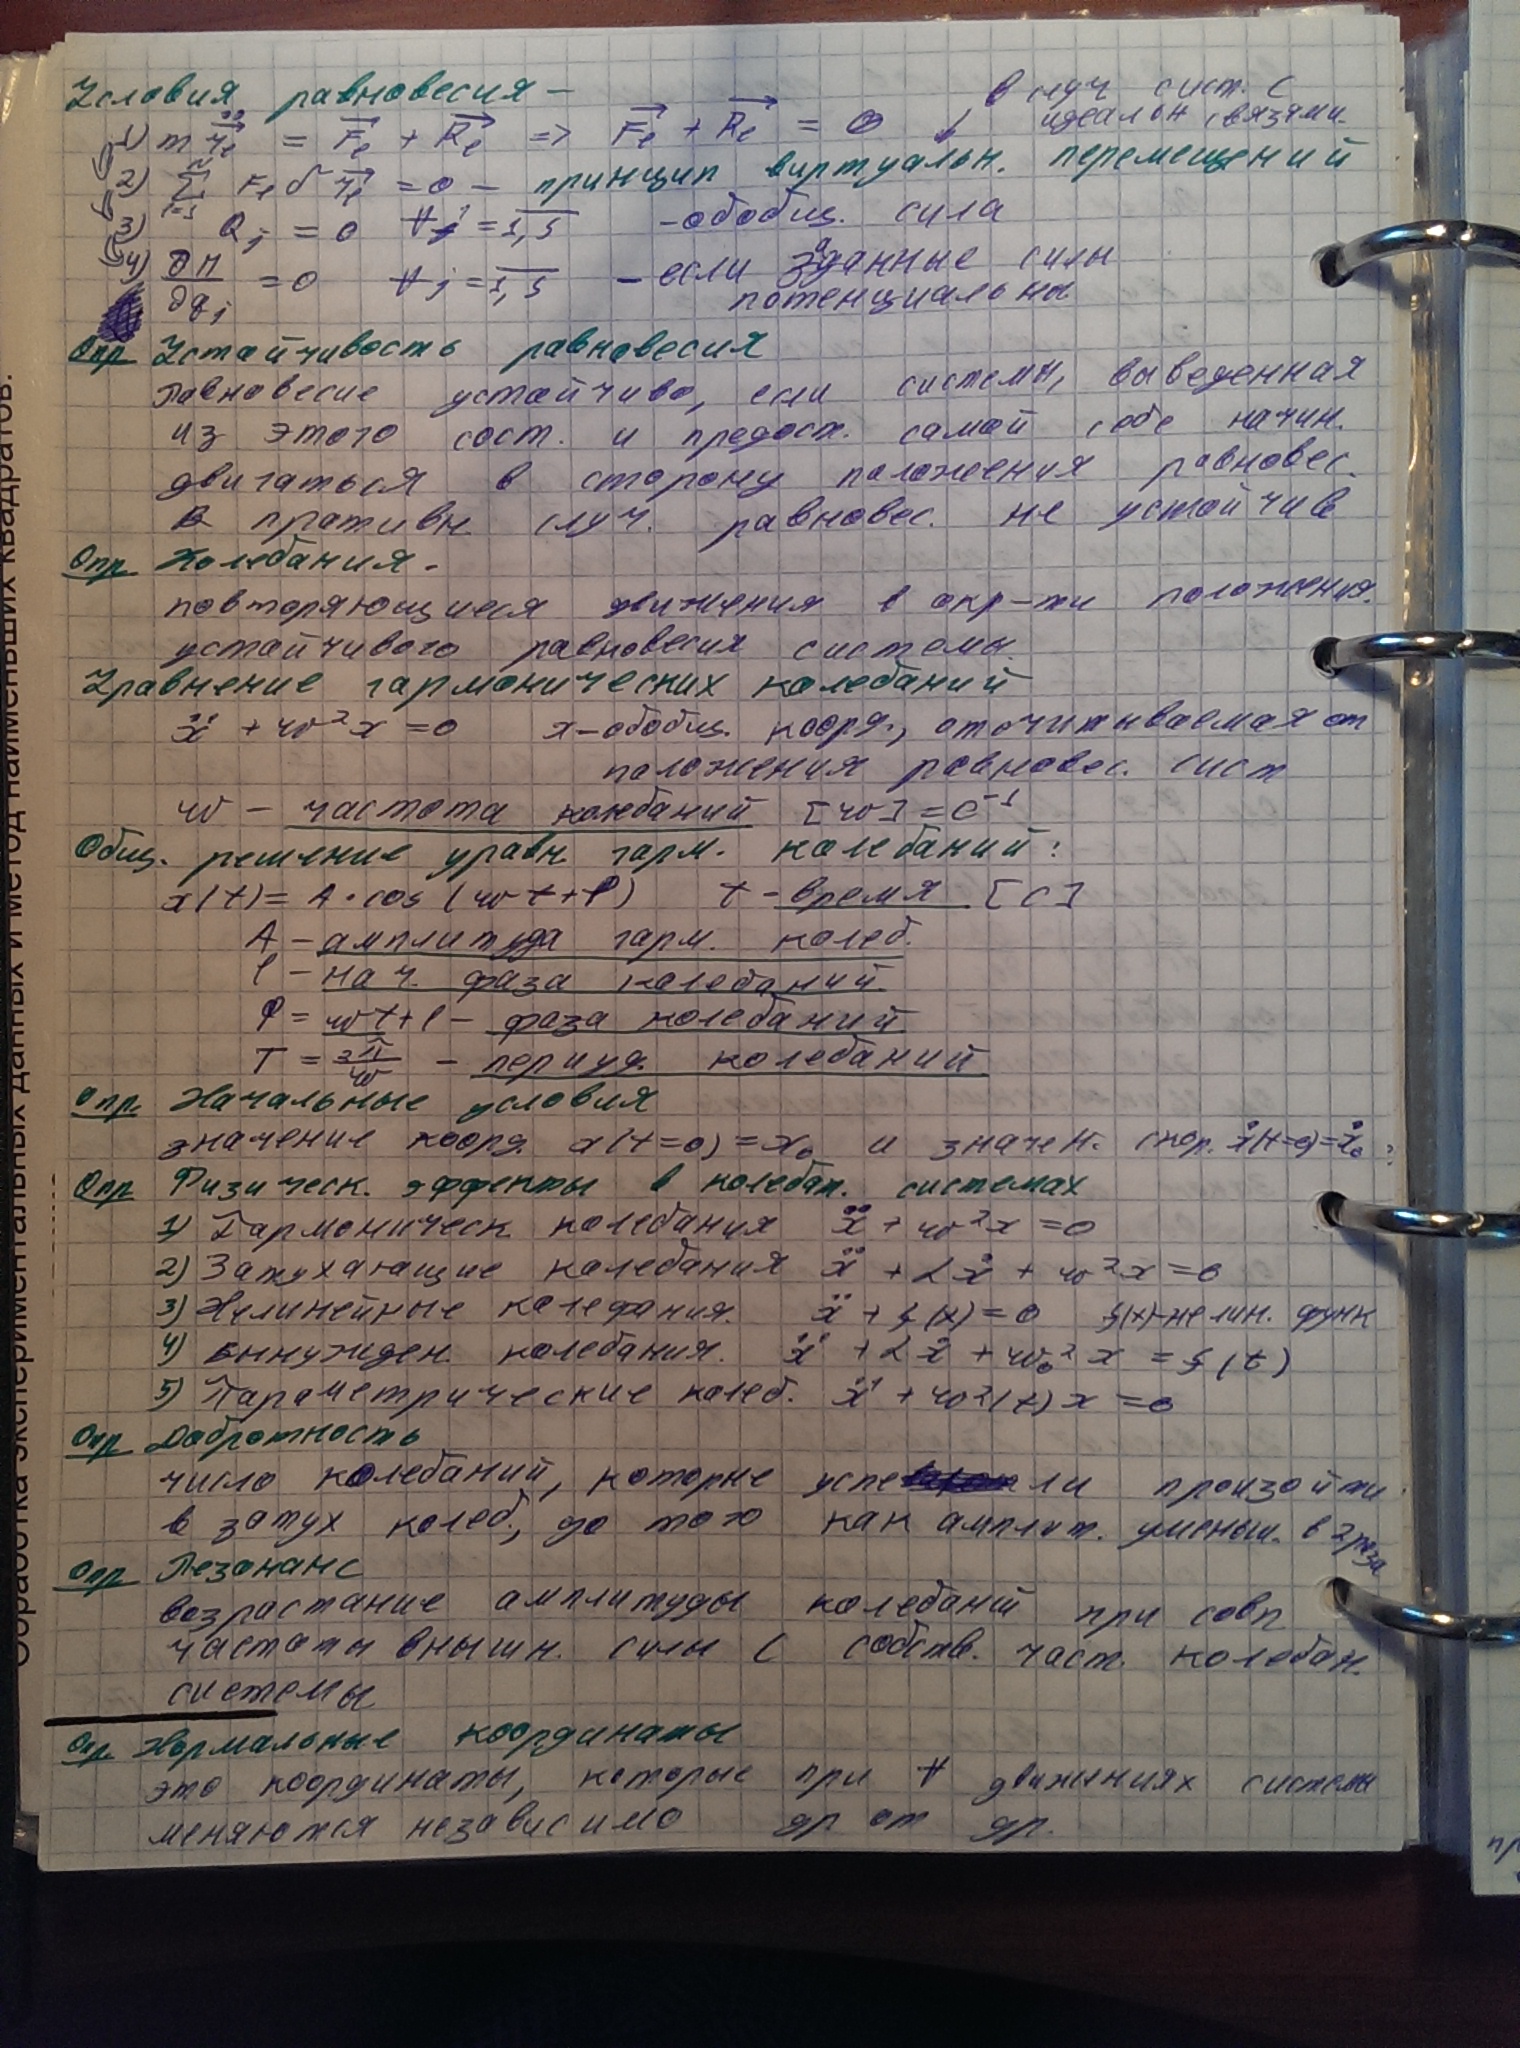 Условия равновесия –
в случ сист. с
идеальн связями.
1) m r̈ₑ = Fₑ + Rₑ => Fₑ + Rₑ = 0 ↓
2) Σ Fₑ δ rₑ = 0 – принцип виртуальн. перемещений
3) Qⱼ = 0 ∀j = 1,s – обобщ. сила
4) ∂П/∂qⱼ = 0 ∀j = 1,s – если заданные силы
потенциальны
Опр Устайчивость равновесия
Равновесие устайчиво, если системы, выведенная
из этого сост. и предост. самой себе начин.
двигаться в сторону положения равновес.
В противн. случ. равновес. не устойчив
Опр Колебания.
повторяющиеся движения в окр-ти положения.
устайчивого равновесия системы.
Уравнение гармонических колебаний
ẍ + w²x = 0 x – обобщ. коорд., отсчитываемая от
положения равновес. сист
w – частота колебаний [w] = c⁻¹
Общ. решение уравн. гарм. колебаний:
x(t) = A · cos (wt + φ) t – время [c]
A – амплитуда гарм. колеб.
φ – нач. фаза колебаний.
Φ = wt + φ – фаза колебаний
T = 2π/w – период. колебаний
Опр. Начальные условия
значение коорд. x(t=0) = x₀ и значен. скор. ẋ(t=0) = ẋ₀
Опр Физическ. эффекты в колебат. системах
1) Гармоническ колебания ẍ + w²x = 0
2) Затухающие колебания ẍ + 2ẋ + w²x = 0
3) Нелинейные колебания. ẍ + f(x) = 0 f(x) – нелин. функ
4) Вынужден. колебания. ẍ + 2ẋ + w₀²x = f(t)
5) Параметрические колеб. ẍ + w²(t)x = 0
Опр Добротность
число колебаний, которые успели произойти
в затух колеб., до того как амплит. уменьш. в 2 раза
Опр Резонанс
возрастание амплитуды колебаний при совп
частоты внышн. силы с собств. част. колебан.
системы
Опр. Нормальные координаты
это координаты, которые при ∀ движениях системы
меняются независимо др от др.
Обработка экспериментальных данных и метод наименьших квадратов.